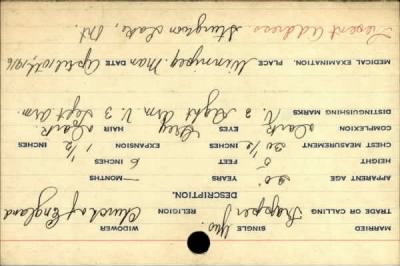 MARRIED SINGLE Yes. WIDOWER
TRADE OR CALLING Trapper RELIGION Church of England
DESCRIPTION.
APPARENT AGE 20 YEARS MONTHS
HEIGHT 5 FEET 6 INCHES
CHEST MEASUREMENT 30½ INCHES EXPANSION 1½ INCHES
COMPLEXION Dark EYES Grey HAIR Dark.
DISTINGUISHING MARKS V. 2 Right Arm V. 3 Left Arm.
MEDICAL EXAMINATION. PLACE Winnipeg. Man DATE April 10th, 1916
Present Address. Sturgeon Lake, Ont.